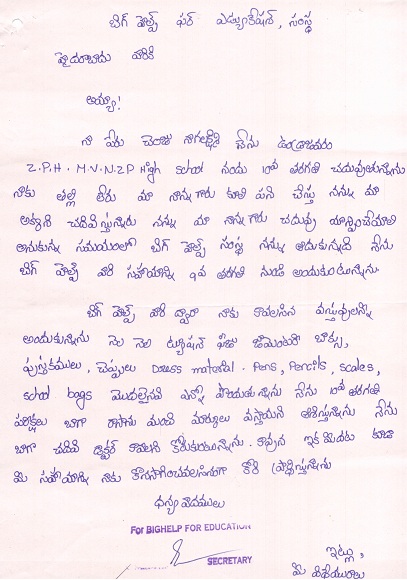 బిగ్ హెల్ప్ ఫర్ ఎడ్యుకేషన్, సంస్థ
హైదరాబాదు వారికి
అయ్యా!
నా పేరు చెంజు నాగలక్ష్మి నేను ఉండ్రాజవరం
Z.P.H. M.V.N.Z.P High school నందు 10వ తరగతి చదువుతున్నాను
నాకు తల్లి లేరు మా నాన్న గారు కూలి పని చేస్తు నన్ను మా
అక్కని చదివిస్తున్నారు నన్ను మా నాన్నగారు చదువు మాన్పించేయాలి
అనుకున్న సమయంలో బిగ్ హెల్ప్ సంస్థ నన్ను ఆదుకున్నది నేను
బిగ్ హెల్ప్ వారి సహాయాన్ని 9వ తరగతి నుండి అందుకుంటున్నాను.
బిగ్ హెల్ప్ వారి ద్వారా నాకు కావలసిన వస్తువులన్ని
అందుకున్నాను నెల నెల ట్యూషన్ ఫీజు జామెంటరి బాక్సు,
పుస్తకములు, చెప్పులు Dress material. Pens, Pencils, scales,
school bags మొదలైనవి ఎన్నో పొందుతున్నాను నేను 10వ తరగతి
పరీక్షలు బాగా రాసాను మంచి మార్కులు వస్తాయని ఆశిస్తున్నాను నేను
బాగా చదివి డాక్టర్ కావాలని కోరుకుంటున్నాను. కావున ఇక మీదట కూడా
మి సహాయాన్ని నాకు కొనసాగించవలసినదిగా కోరి ప్రార్థిస్తున్నాను
ధన్యవాదములు
For BIGHELP FOR EDUCATION
SECRETARY
ఇట్లు,
మి విధేయురాలు